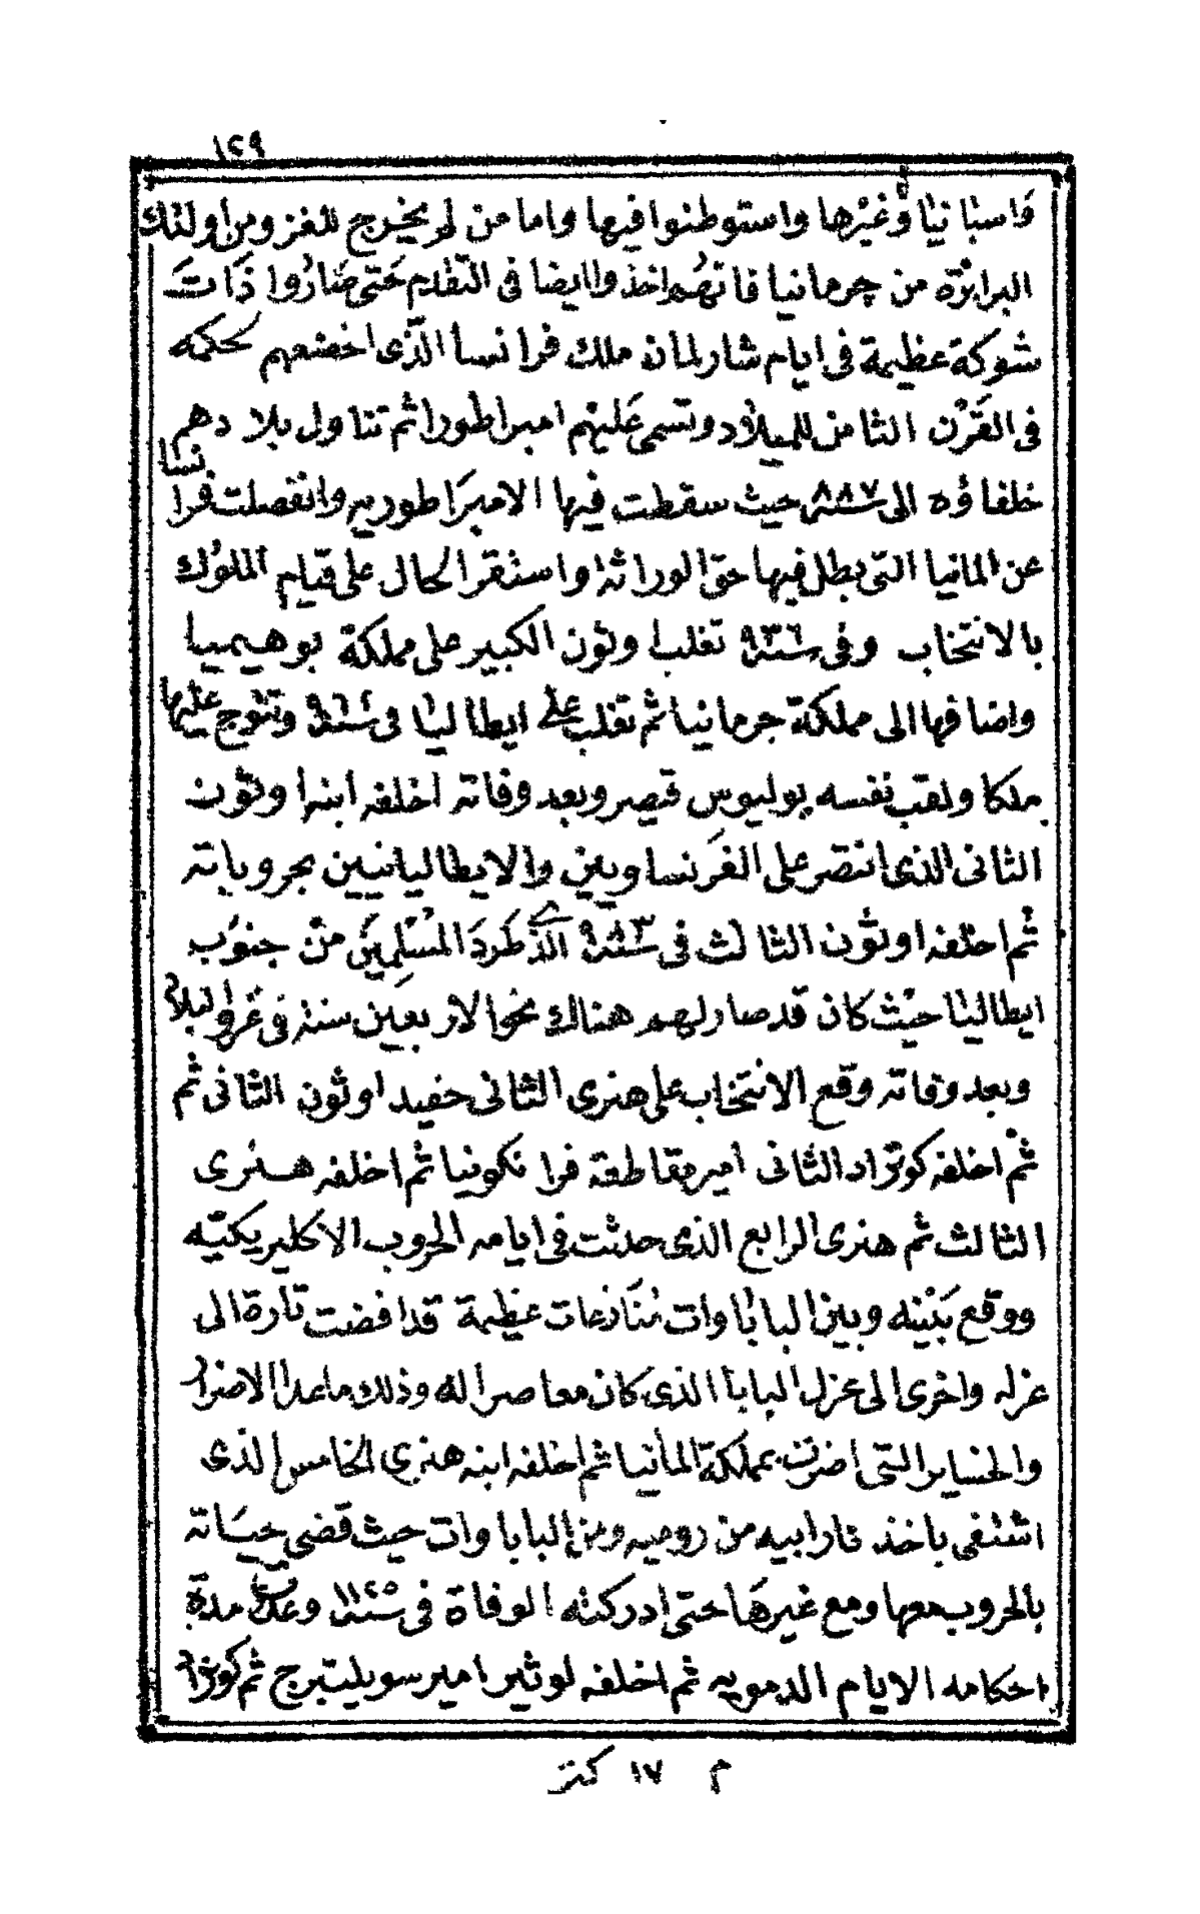 ١٢٩
واسبانيا وغيرها واستوطنوا فيها واما من لم يخرج للغزو من اولئك
البرابرة من جرمانيا فانهم اخذوا ايضا فى التقدم حتى صاروا ذات
شوكة عظيمة فى ايام شارلمان ملك فرانسا الذى اخضعهم لحكمه
فى القرن الثامن للميلاد وتسمى عليهم امبراطورا ثم تناول بلادهم
خلفاؤه الى سنة ٨٨٧ حيث سقطت فيها الامبراطوريه وانفصلت فرانسا
عن المانيا التى بطل فيها حق الوراثة واستقر الحال على قيام الملوك
بالانتخاب وفى سنة ٩٣٦ تغلب اوثون الكبير على مملكة بوهيميا
واضافها الى مملكة جرمانيا ثم تغلب على ايطاليا فى سنة ٩٦٤ وتتوج عليها
ملكا ولقب نفسه يوليوس قيصر وبعد وفاته اخلفه ابنه اوثون
الثانى الذى انتصر على الفرنساويين والايطاليانيين بحروباته
ثم اخلفه اوثون الثالث فى سنة ٩٨٣ الذى طرد المسلمين من جنوب
ايطاليا حيث كان قد صار لهم هناك نحو الاربعين سنة فى غزو البلاد
وبعد وفاته وقع الانتخاب على هنرى الثانى حفيد اوثون الثانى ثم
ثم اخلفه كونراد الثانى امير مقاطعة فرانكونيا ثم اخلفه هنرى
الثالث ثم هنرى الرابع الذى حدثت فى ايامه الحروب الاكليريكيه
ووقع بينه وبين الباباوات منازعات عظيمة قد افضت تارة الى
عزله واخرى الى عزل البابا الذى كان معاصرا له وذلك ماعدا الاضرار
والخساير التى اضرت بمملكة المانيا ثم اخلفه ابنه هنرى الخامس الذى
اشتفى باخذ ثار ابيه من روميه ومن الباباوات حيث قضى حياته
بالحروب معها ومع غيرها حتى ادركته الوفاة فى سنة ١١٢٥ وعدت مدة
احكامه الايام الدمويه ثم اخلفه لوثير امير سوبليتبرج ثم كونراد
م ١٧ كنز